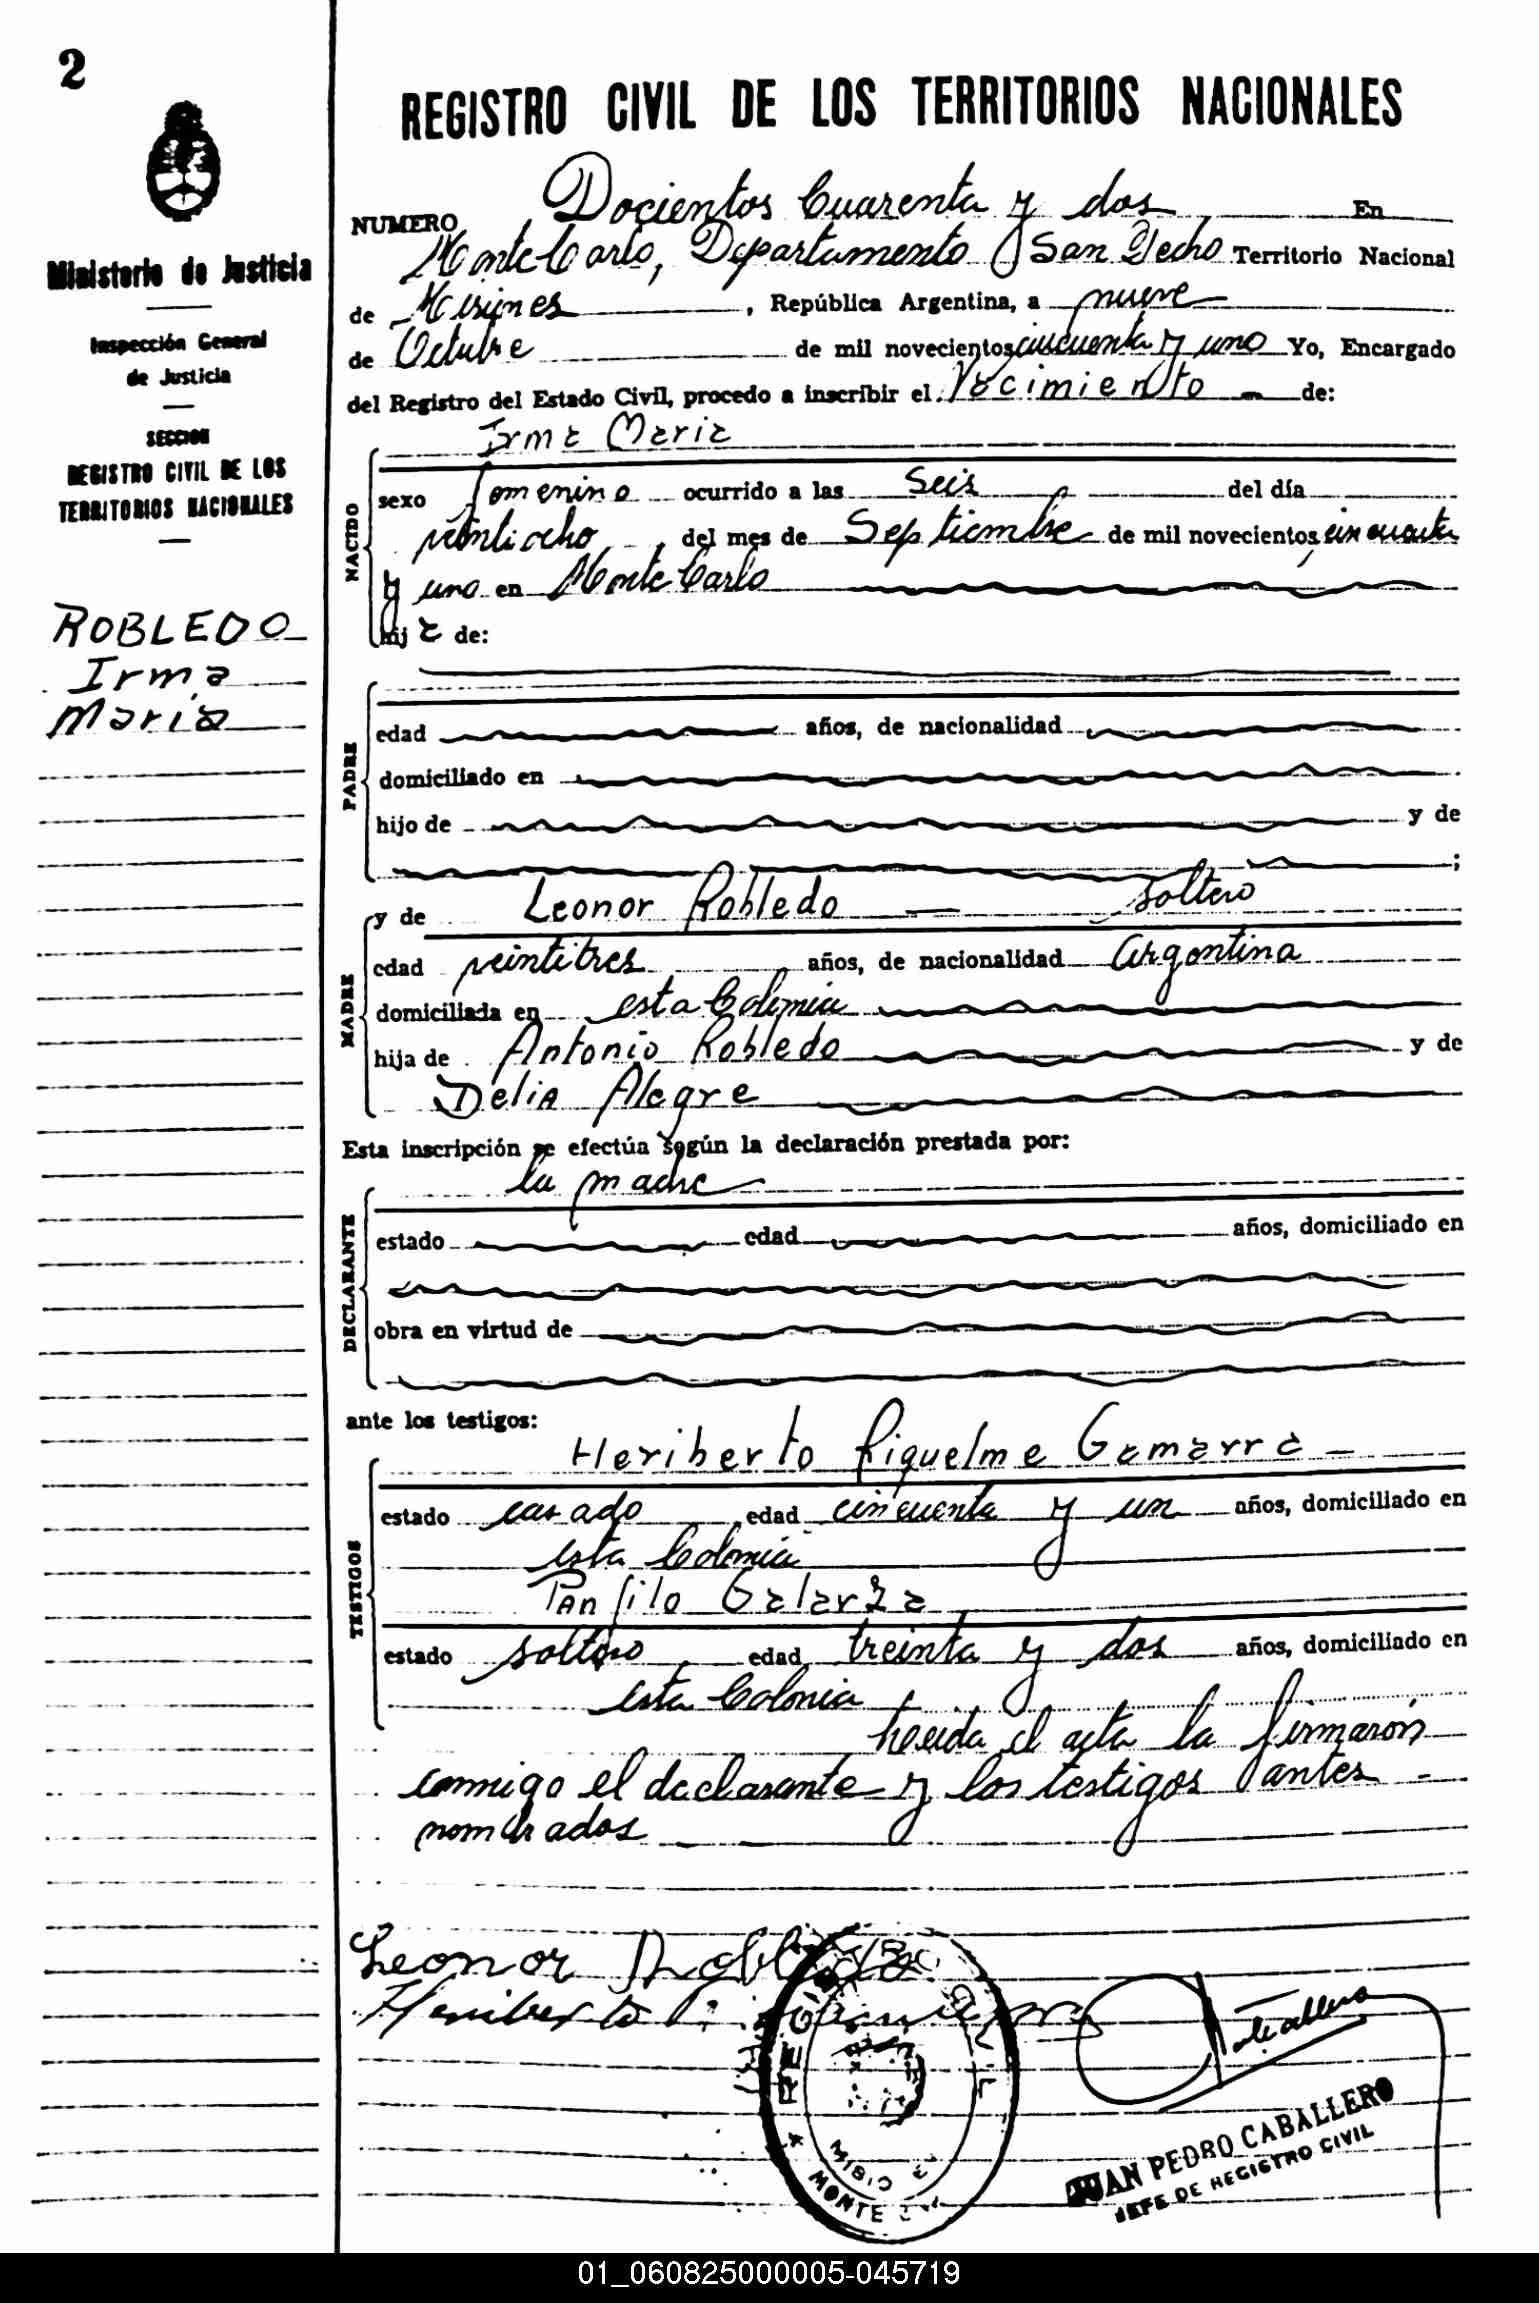 2
Ministerio de Justicia
Inspección General
de Justicia
SECCION
REGISTRO CIVIL DE LOS
TERRITORIOS NACIONALES
ROBLEDO
Irma
María
REGISTRO CIVIL DE LOS TERRITORIOS NACIONALES
NUMERO Docientos Cuarenta y dos En
Monte Carlo, Departamento San Pedro Territorio Nacional
de Misiones, República Argentina, a nueve
de Octubre de mil novecientos cincuenta y uno Yo, Encargado
del Registro del Estado Civil, procedo a inscribir el Nacimiento de:
Irma Maria
NACIDO
sexo femenino ocurrido a las Seis del día
veintiocho del mes de Septiembre de mil novecientos cincuenta
y uno en Monte Carlo
hija de:
PADRE
edad años, de nacionalidad
domiciliado en
hijo de y de
;
y de Leonor Robledo — soltera
MADRE
edad veintitres años, de nacionalidad Argentina
domiciliada en esta Colonia
hija de Antonio Robledo y de
Delia Alegre
Esta inscripción se efectúa según la declaración prestada por:
la madre
DECLARANTE
estado edad años, domiciliado en
obra en virtud de
ante los testigos:
Heriberto Riquelme Gamarra
TESTIGOS
estado casado edad cincuenta y un años, domiciliado en
esta Colonia
Panfilo Galarza
estado soltero edad treinta y dos años, domiciliado en
esta Colonia
Leida el acta la firmaron
conmigo el declarante y los testigos antes
nombrados
Leonor Robledo
Heriberto R.
REGISTRO CIVIL
MONTE
JUAN PEDRO CABALLERO
JEFE DE REGISTRO CIVIL
01_060825000005-045719